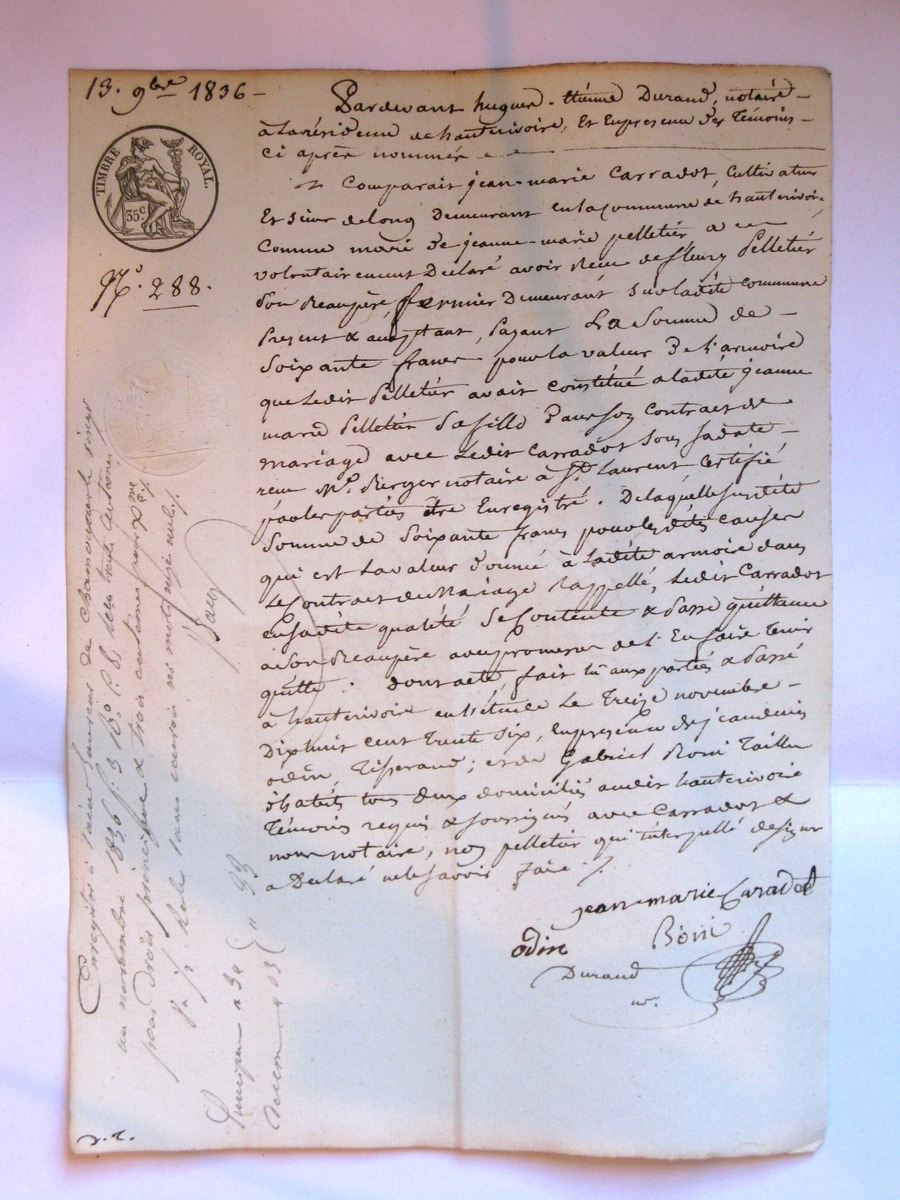 13. 9bre 1836 -
TIMBRE ROYAL.
35c
N°. 288.
Pardevant hugues-étienne Durand, notaire
à la résidence de hauterivoire, Et Enpresence des Témoins
ci après nommés
Comparait jean-marie Carradot, Cultivateur
Et sieur delong Demeurant en la commune de hauterivoire,
Comme mari de jeanne-marie pelletier a
volontairement Déclaré avoir Recu de fleury Pelletier
Son Beaupère, fermier Demeurant Sur ladite commune
Present & acceptant, Payant La Somme de
Soixante francs pour la valeur De l'armoire
que Ledit Pelletier avait constitué a ladite jeanne
marie Pelletier Sa fille Dans Son Contrat de
mariage avec Ledit Carradot Sous Sa date
recu Me. Berger notaire à St. Laurent Certifié
par les parties être Enregistré. De laquelle susdite
Somme de Soixante francs pour les dites causes
qui est La valeur donnée à Ladite armoie dans
Le Contrat de Mariage Rappellé, Ledit Carradot
en Sadite qualité Se Contente & Passe quittance
à Son Beaupère avec promesse de l'En faire Tenir
quitte. Dont acte, fait lu aux parties & Passé
à hauterivoire en l'étude Le Treize novembre
Dix huit cent Trente Six, En presence de jean denis
odin, Tisserand; et de Gabriel Boni Tailleur
d'habits tous Deux domiciliés audit hauterivoire
Témoins requis & soussignés avec Carradot &
nous notaire, non pelletier qui interpellé de signer
a Déclaré ne le savoir faire
jean-marie Caradot
odin Boni
Durand
nre.
Enregistré à saint Laurent de chamousset le vingt
un novembre 1836 f. 3 Ro. C. 8. recu trente centimes
pour droit principal & trois centimes pour 10me